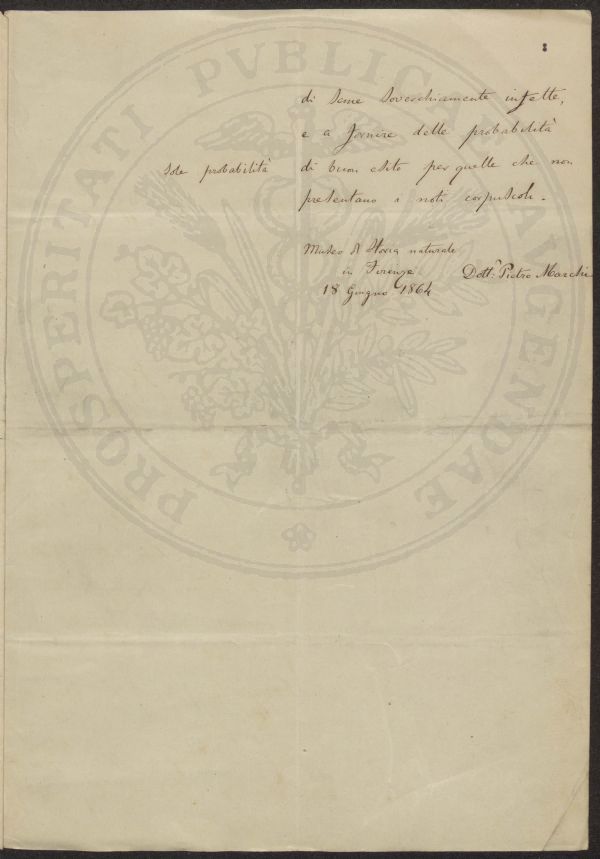 8
di seme soverchiamente infette,
e a fornire delle probabilità
sole probabilità
di buon esito per quelle che non
presentano i noti corpuscoli.
Museo di Storia naturale
in Firenze
18 Giugno 1864
Dott. Pietro Marchi
PROSPERITATI PVBLICAE AVGENDAE